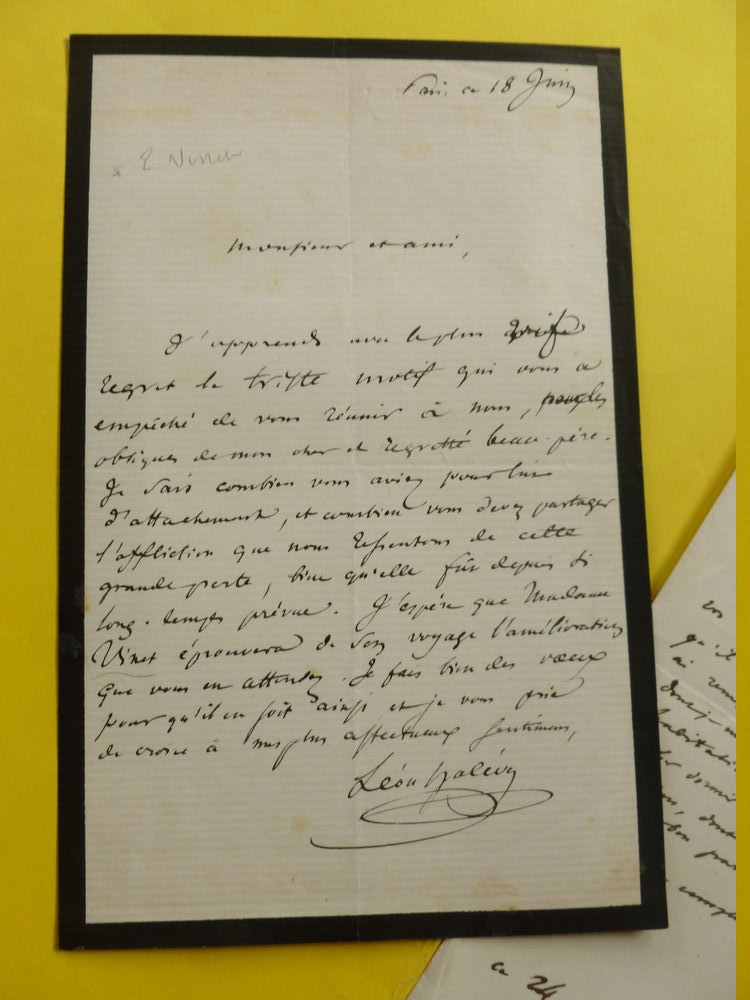 Paris ce 18 Juin
à E. Vinet
Monsieur et ami,
J'apprends avec le plus
regret le triste motif qui vous a
empêché de vous réunir à nous, pour les
obsèques de mon cher et regretté beau-père.
Je sais combien vous aviez pour lui
d'attachement, et combien vous devez partager
l'affliction que nous ressentons de cette
grande perte, bien qu'elle fût depuis si
long-temps prévue. J'espère que Madame
Vinet éprouvera de son voyage l'amélioration
que vous en attendez. Je fais bien des vœux
pour qu'il en soit ainsi et je vous prie
de croire à mes plus affectueux sentimens,
Léon Halévy
vos
qu'il
ai
donc, dont
bon
ce 24